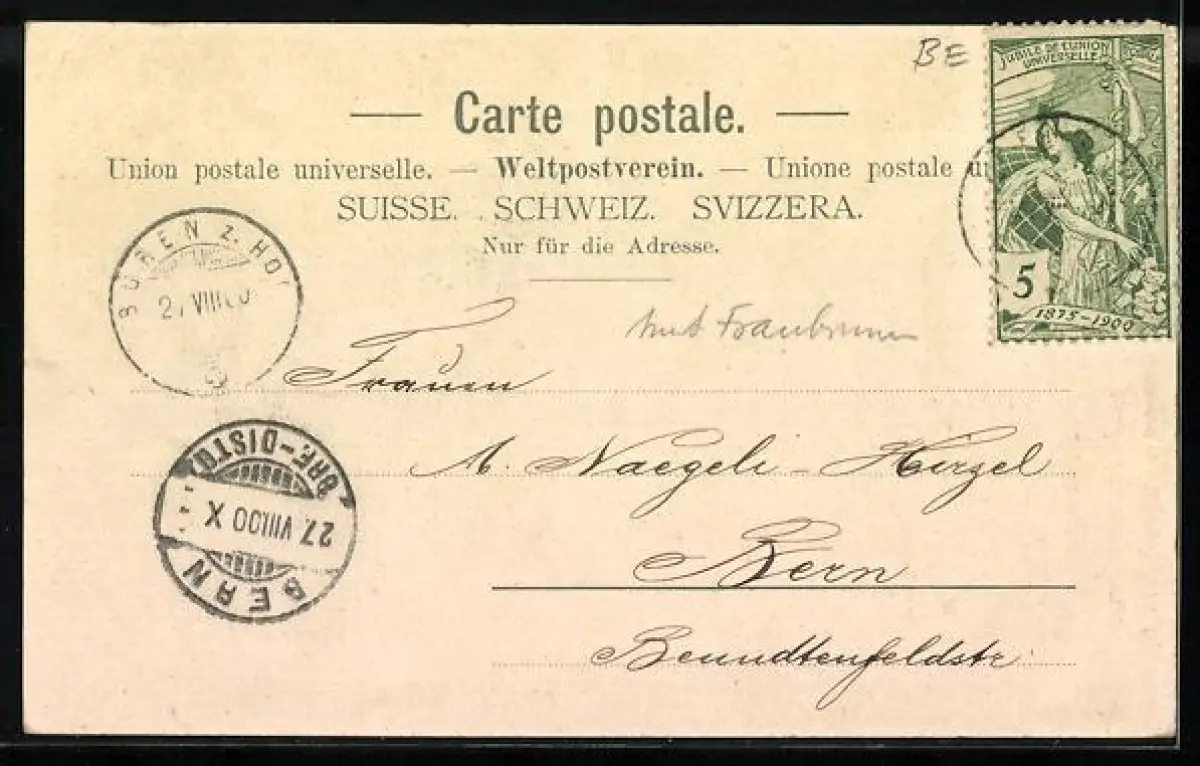 BE
JUBILÉ DE L'UNION
UNIVERSELLE
5
1875-1900
Carte postale.
Union postale universelle. — Weltpostverein. — Unione postale u
SUISSE. SCHWEIZ. SVIZZERA.
Nur für die Adresse.
BÜREN Z. HOF
27 VIII 00
Amt Fraubrunnen
Frauen
A. Naegeli-Hirzel
Bern
Beundtenfeldstr.
BRE-DISTR.
27. VIII.00 X
BERN